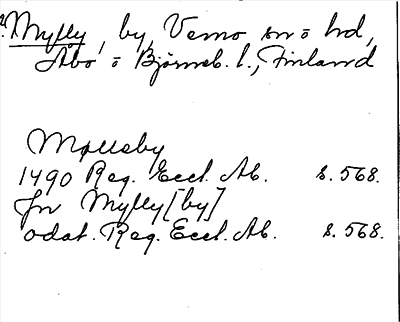 Mylly, by, Vemo sn o hd,
Åbo o Björneb. l., Finland
Mølleby
1490 Reg. Eccl. Ab. s. 568.
fr Mylly [by]
odat. Reg. Eccl. Ab. s. 568.